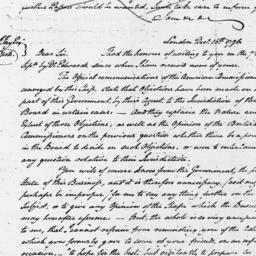 further
London Dec. 16th 1796
Dear Sir. I had the honour of writing to you on the
by Dr. Edwards since when I have received none of yours.
The Official communications of the American Commissioners
conveyed by this Ship, state that Objections have been made on the
part of this Government, by their Agent to the Jurisdiction of the
Board in certain cases — And they explain the Nature and
Extent of those Objections, as well as the Opinion of the British
Commissioners on the previous question whether there be a power
in the Board to decide on such Objections, or even to entertain
any question relative to their Jurisdiction.
You will of course learn from the Government, the
State of this Business, and it is therefore unnecessary, and might
perhaps be improper, for me to say any thing further on the
Subject, or to give any Opinion of the Shape which the Business
may hereafter assume. — But, the whole is so very unpleasant
to me, that I cannot refrain from reminding you of the
which you formerly gave to some of your friends, on an
occasion — to hope for the best, but vigilantly to prepare